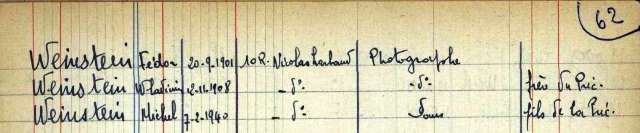 62
Weinstein Fédor 20-9-1901 10 R. Nicolas Photographe
Weinstein Wladimir 12-11-1908 - d° - d° frère du Préc.
Weinstein Michel 7-2-1940 - d° Sans fils de la Préc.